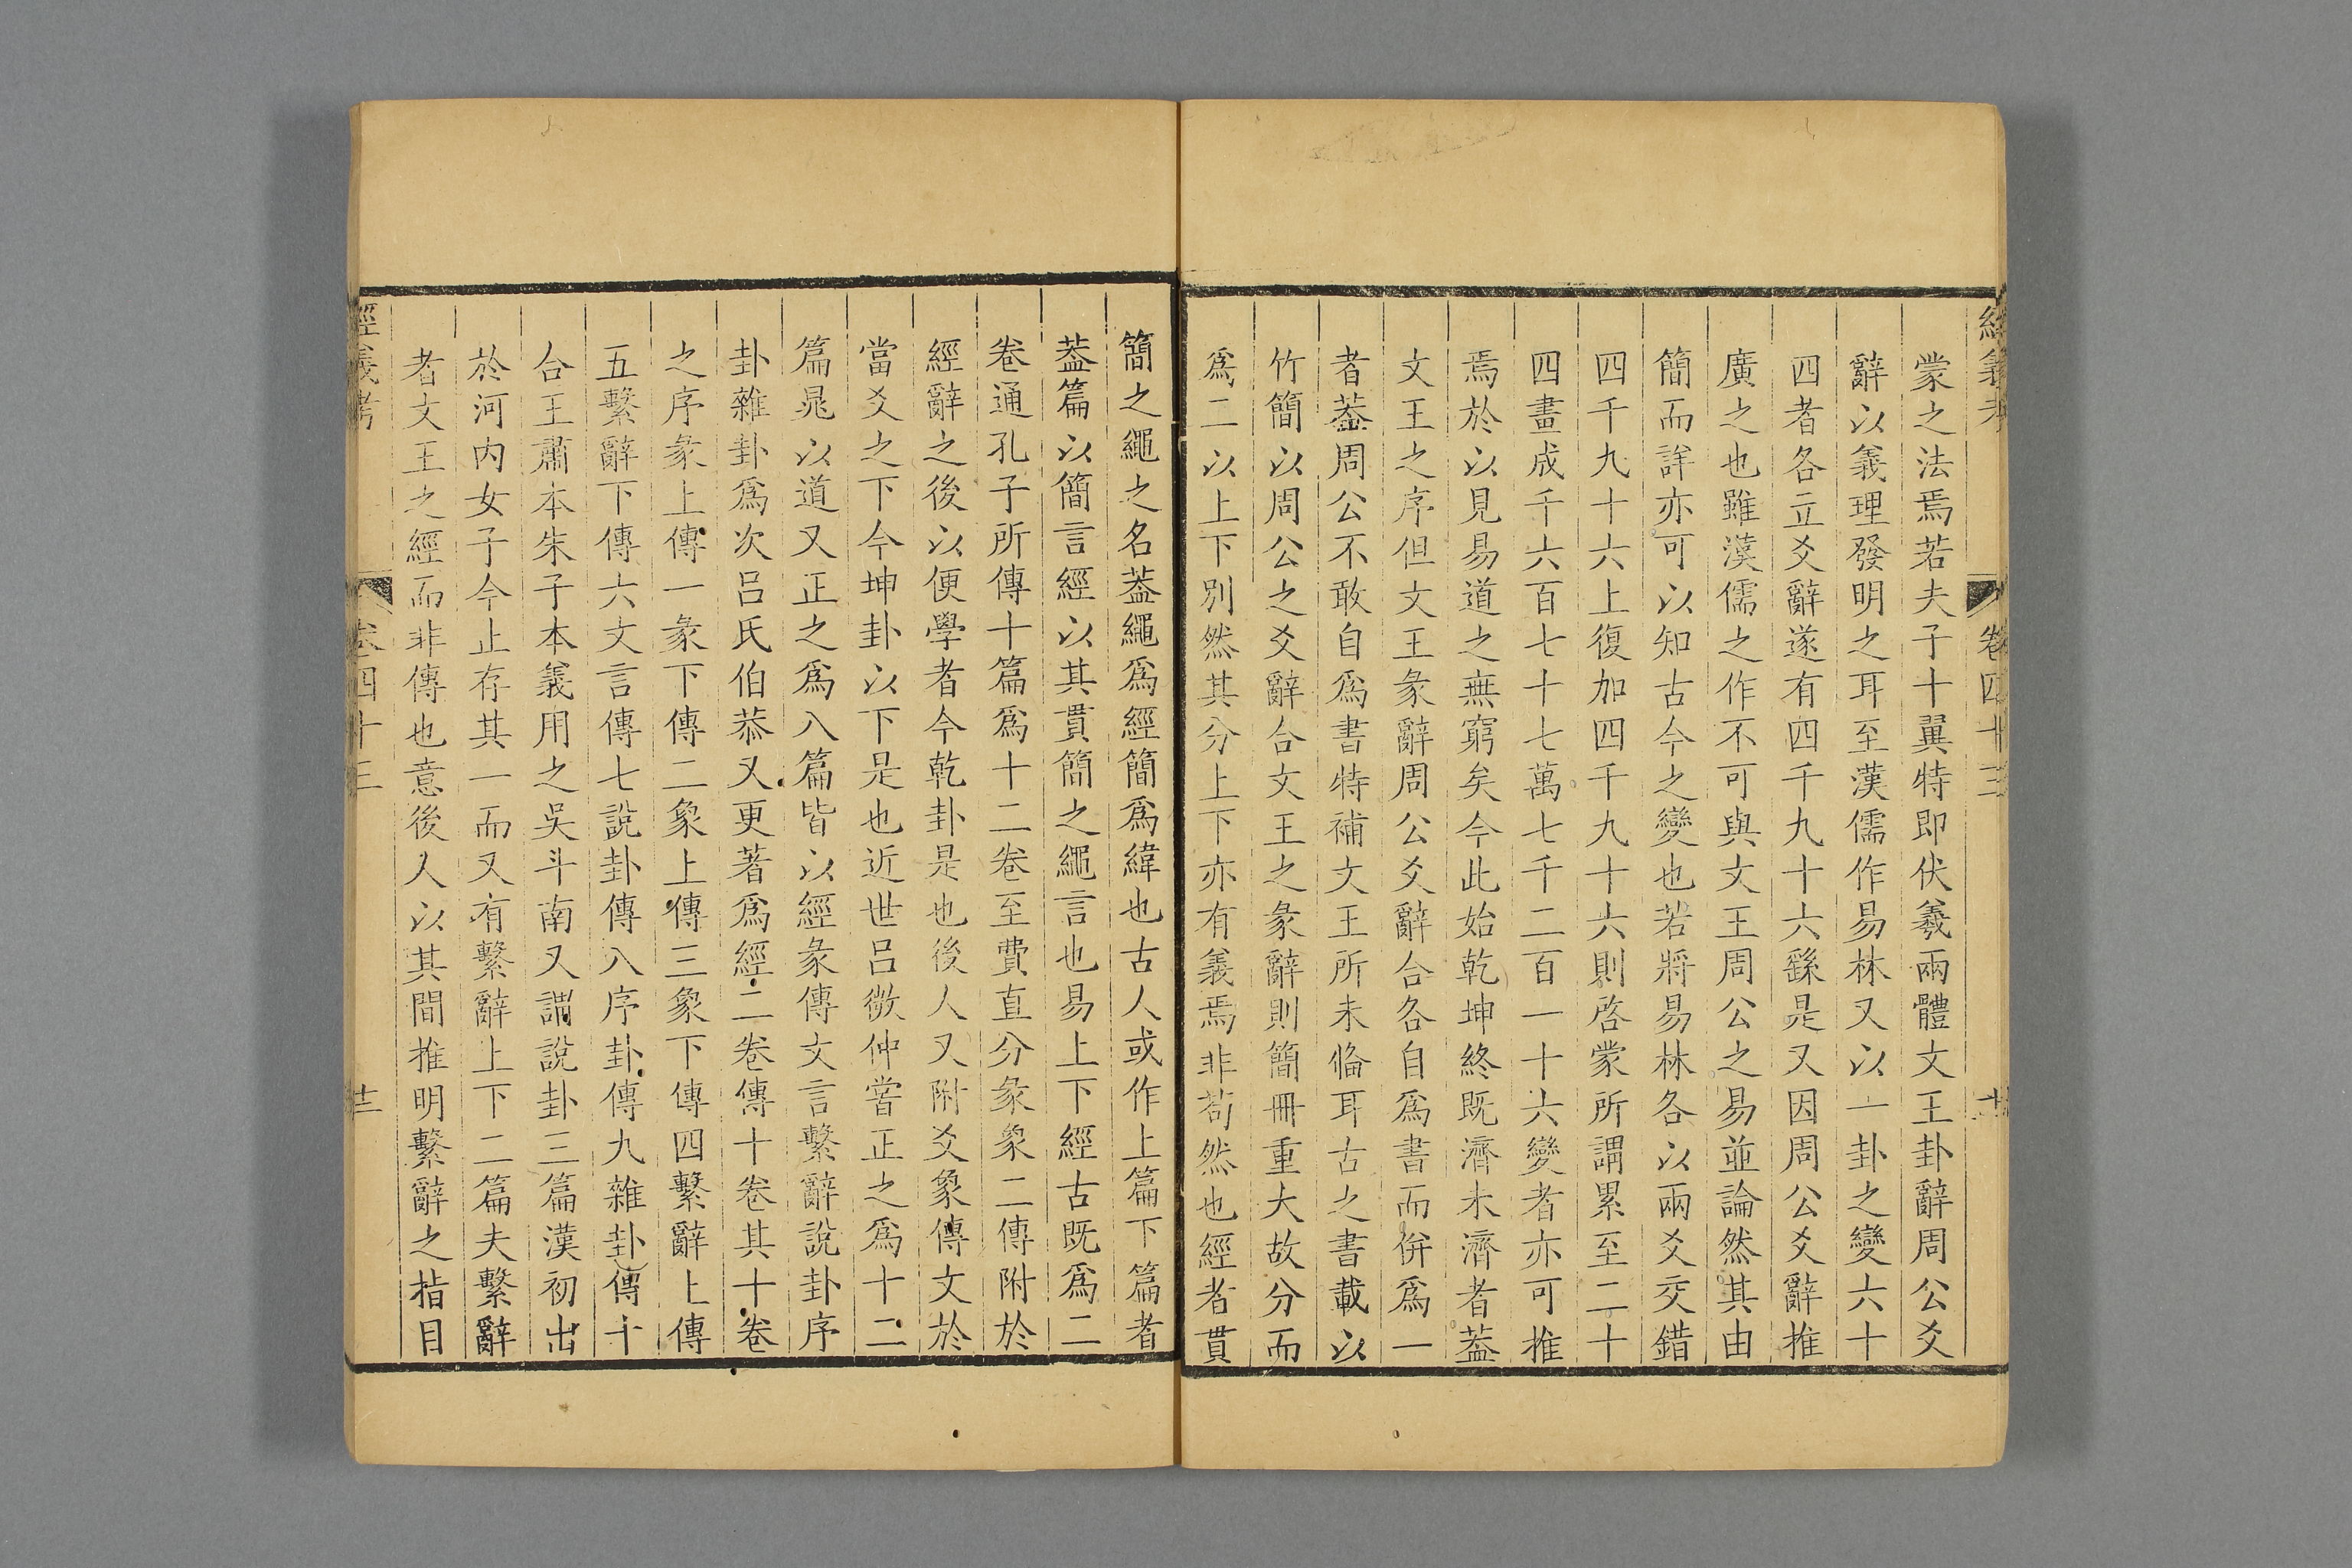 經義考 卷四十三
蒙之法焉若夫子十翼特即伏羲兩體文王卦辭周公爻
辭以義理發明之耳至漢儒作易林又以一卦之變六十
四者各立爻辭遂有四千九十六繇是又因周公爻辭推
廣之也雖漢儒之作不可與文王周公之易並論然其由
簡而詳亦可以知古今之變也若將易林各以兩爻交錯
四千九十六上復加四千九十六則啓蒙所謂累至二十
四畫成千六百七十七萬七千二百一十六變者亦可推
焉於以見易道之無窮矣今此始乾坤終既濟未濟者葢
文王之序但文王彖辭周公爻辭合各自爲書而併爲一
者葢周公不敢自爲書特補文王所未備耳古之書載以
竹簡以周公之爻辭合文王之彖辭則簡冊重大故分而
爲二以上下別然其分上下亦有義焉非茍然也經者貫
簡之繩之名葢繩爲經簡爲緯也古人或作上篇下篇者
葢篇以簡言經以其貫簡之繩言也易上下經古既爲二
卷通孔子所傳十篇爲十二卷至費直分彖象二傳附於
經辭之後以便學者今乾卦是也後人又附爻象傳文於
當爻之下今坤卦以下是也近世呂微仲嘗正之爲十二
篇晁以道又正之爲八篇皆以經彖傳文言繫辭說卦序
卦雜卦爲次呂氏伯恭又更著爲經二卷傳十卷其十卷
之序彖上傳一彖下傳二象上傳三象下傳四繫辭上傳
五繫辭下傳六文言傳七說卦傳八序卦傳九雜卦傳十
合王肅本朱子本義用之吳斗南又謂說卦三篇漢初出
於河内女子今止存其一而又有繫辭上下二篇夫繫辭
者文王之經而非傳也意後人以其間推明繫辭之指目
經義考 卷四十三